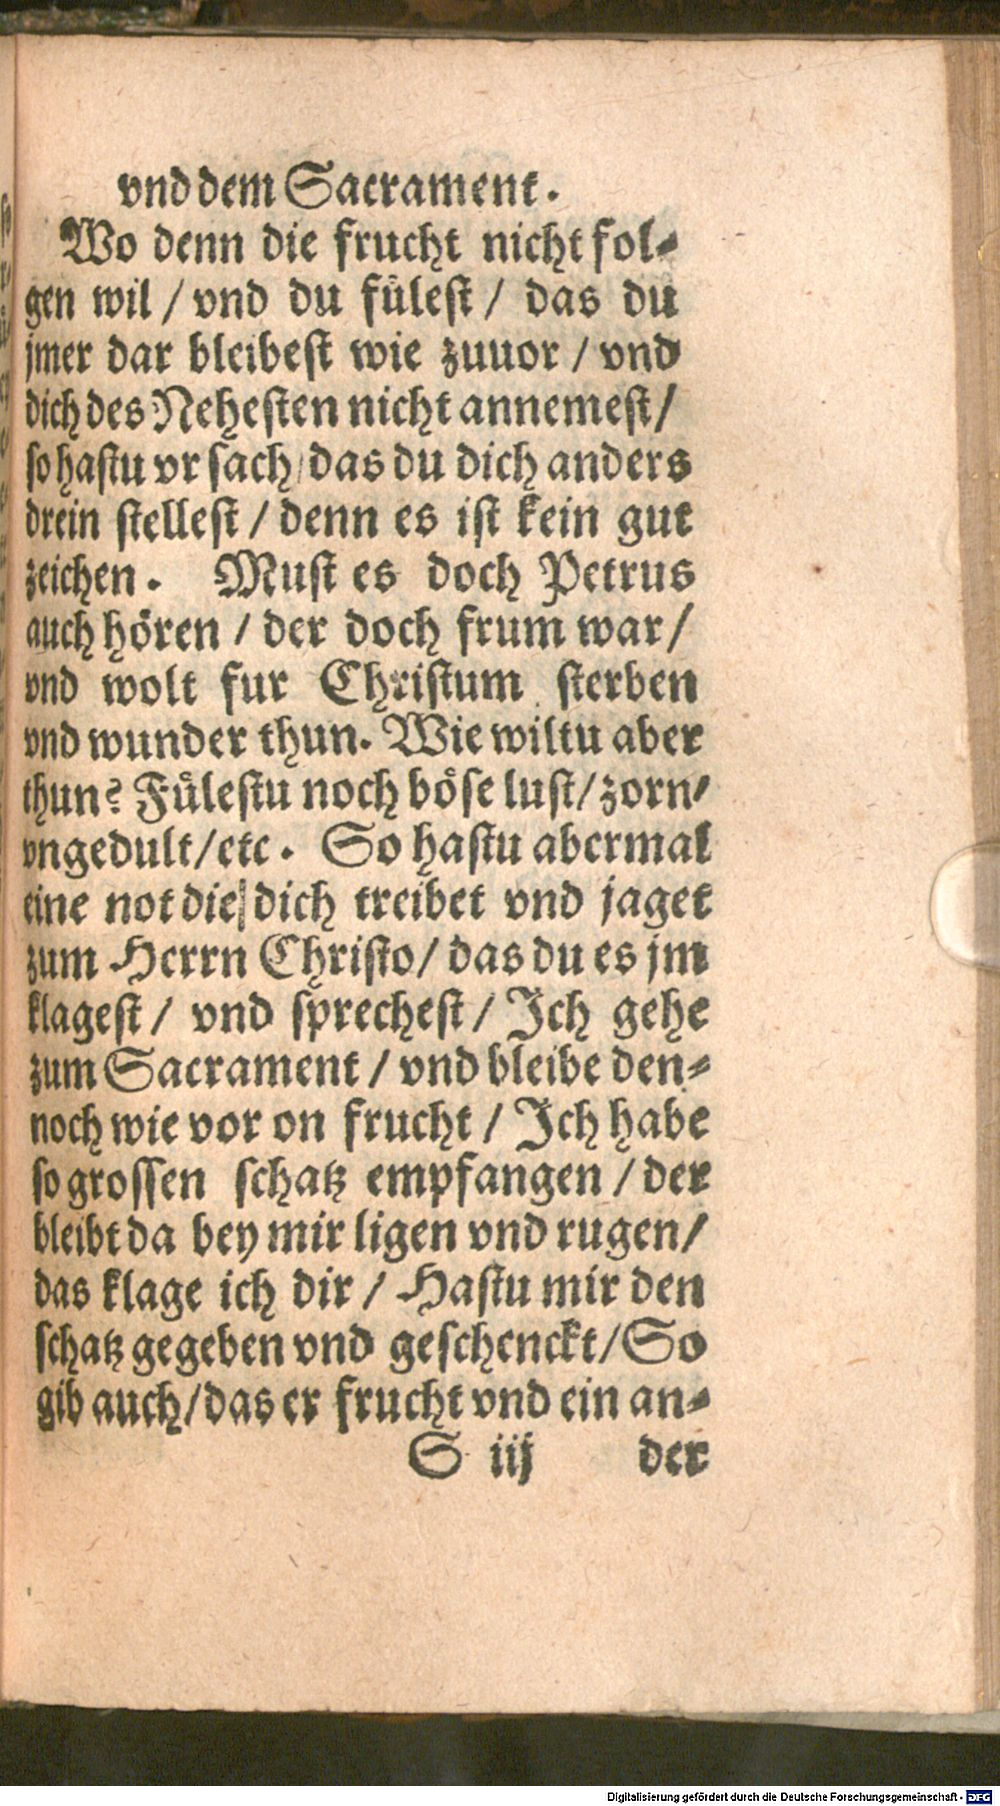 vnd dem Sacrament.
Wo denn die frucht nicht fol-
gen wil / vnd du fülest / das du
jmer dar bleibest wie zuuor / vnd
dich des Nehesten nicht annemest /
so hastu vrsach / das du dich anders
drein stellest / denn es ist kein gut
zeichen. Must es doch Petrus
auch hören / der doch frum war /
vnd wolt fur Christum sterben
vnd wunder thun. Wie wiltu aber
thun? Fülestu noch böse lust / zorn /
vngedult / etc. So hastu abermal
eine not die dich treibet vnd jaget
zum Herrn Christo / das du es jm
klagest / vnd sprechest / Ich gehe
zum Sacrament / vnd bleibe den-
noch wie vor on frucht / Ich habe
so grossen schatz empfangen / der
bleibt da bey mir ligen vnd rugen /
das klage ich dir / Hastu mir den
schatz gegeben vnd geschenckt / So
gib auch / das er frucht vnd ein an-
S iij der
Digitalisierung gefördert durch die Deutsche Forschungsgemeinschaft - DFG